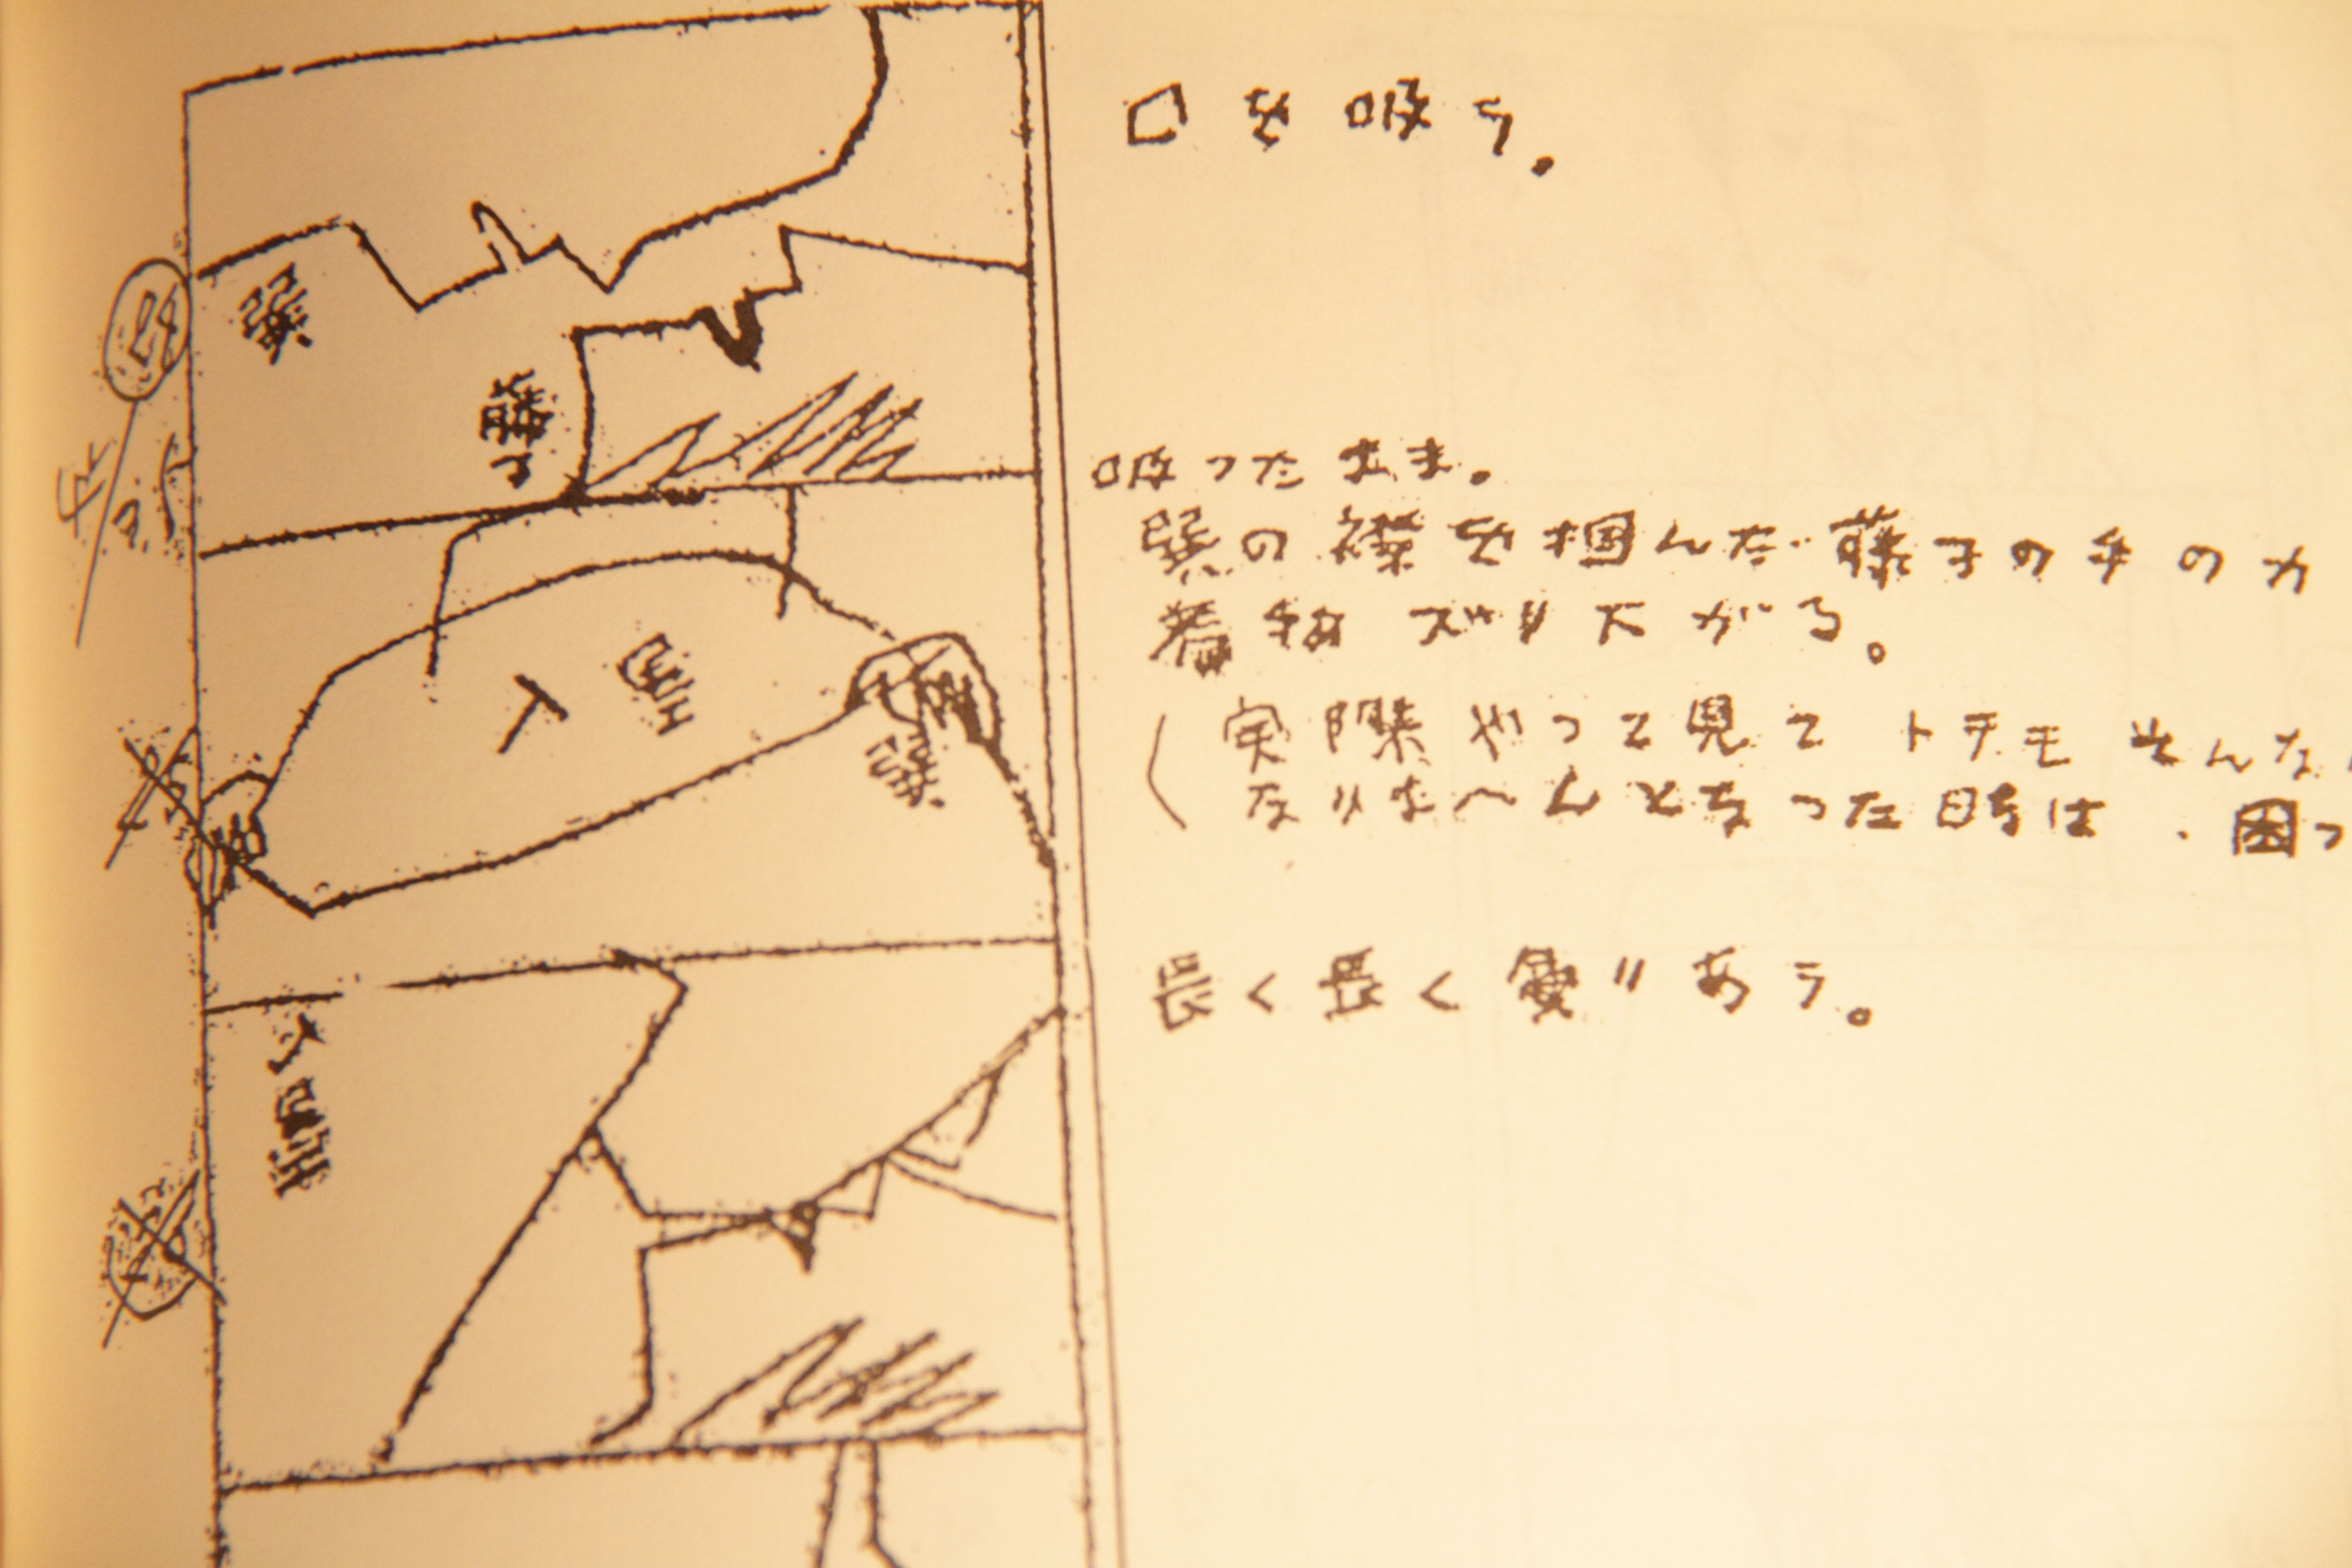 口を吸う。
吸ったまま。
巽の襟を掴んだ藤子の手の力
着物ズリ下がる。
実際やって見てトテモそんな
なりまへんとなった時は、困っ
長く長く愛しあう。
巽
藤子
入墨
巽
入墨